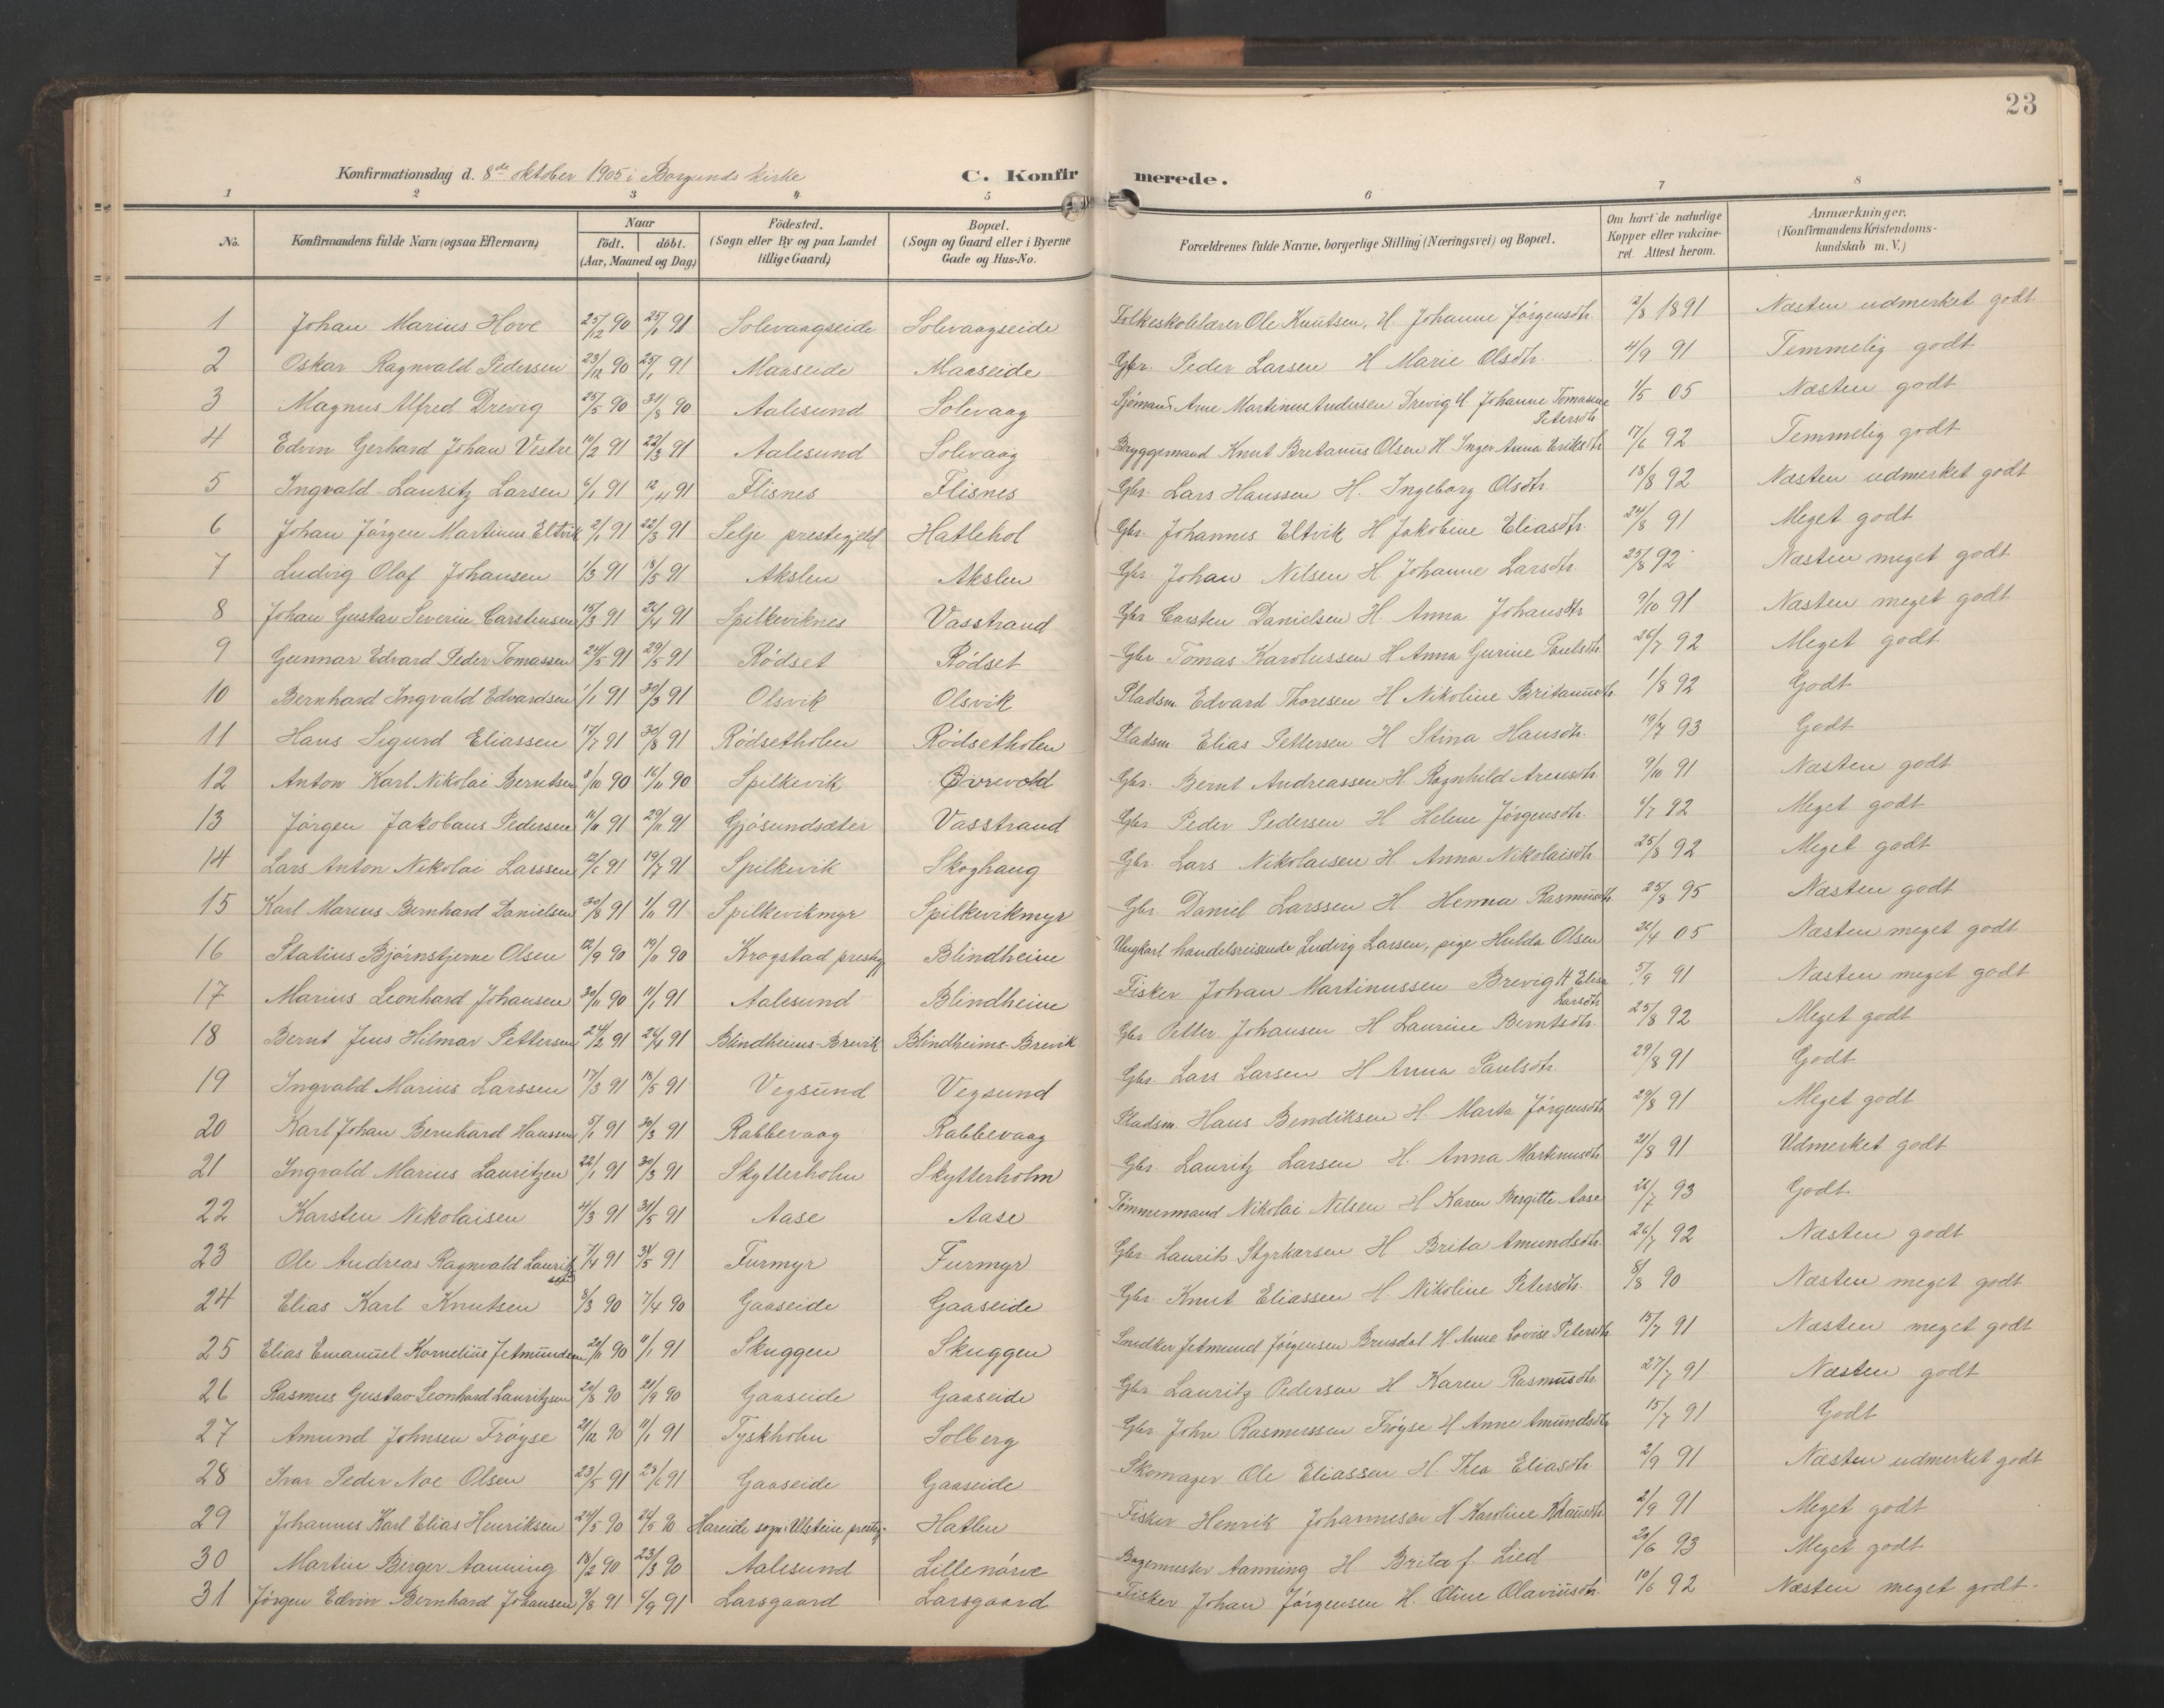 23
Konfirmationsdag d. 8de oktober 1905 i Borgunds kirke
C. Konfirmerede.
1 2 3 4 5 6 7 8
No. | Konfirmandens fulde Navn (ogsaa Efternavn) | Naar født. | døbt. (Aar, Maaned og Dag) | Fødested. (Sogn eller By og paa Landet tillige Gaard) | Bopæl. (Sogn og Gaard eller i Byerne Gade og Hus-No. | Forældrenes fulde Navne, borgerlige Stilling (Næringsvei) og Bopæl. | Om havt de naturlige Kopper eller vakcineret. Attest herom. | Anmærkninger. (Konfirmandens Kristendomskundskab m. V.)
1 Johan Marius Hove 25/12 90 25/1 91 Solevaagseide Solevaagseide Folkeskolelærer Ole Knutsen, H. Johanne Jørgensdtr. 2/8 1891 Næsten udmerket godt
2 Oskar Ragnvald Pedersen 23/12 90 25/1 91 Maaseide Maaseide Gbr. Peder Larsen H Marie Olsdtr. 4/9 91 Temmelig godt
3 Magnus Alfred Drevig 25/5 90 31/8 90 Aalesund Solevaag Sjømand Arne Martinus Andersen Drevig H Johanne Tomasine Petersdtr 1/5 05 Næsten godt
4 Edvin Gerhard Johan Vestre 10/2 91 22/3 91 Aalesund Solevaag Bryggemand Knut Bretanus Olsen H Inger Anna Eriksdtr 17/6 92 Temmelig godt
5 Ingvald Lauritz Larsen 6/1 91 12/4 91 Flisnes Flisnes Gbr. Lars Hanssen H. Ingeborg Olsdtr. 18/8 92 Næsten udmerket godt
6 Johan Jørgen Martinus Eltvik 2/1 91 22/3 91 Selje prestegjeld Hatlehol Gbr. Johannes Eltvik H Jakobine Eliasdtr. 24/8 91 Meget godt
7 Ludvig Olaf Johansen 1/3 91 18/5 91 Akslen Akslen Gbr. Johan Nilsen H Johanne Larsdtr. 23/8 92 Næsten meget godt
8 Johan Gustav Severin Carstensen 15/3 91 26/4 91 Spilkeviknes Vasstrand Gbr Carsten Danielsen H. Anna Johansdtr 9/10 91 Næsten meget godt
9 Gunnar Edvard Peder Tomassen 24/5 91 29/5 91 Rødset Rødset Gbr Tomas Karolussen H Anna Gurine Paulsdtr. 26/7 92 Meget godt
10 Bernhard Ingvald Edvardsen 1/1 91 30/3 91 Olsvik Olsvik Pladsm. Edvard Thoresen H Nikoline Britanusdtr. 1/8 92 Godt
11 Hans Sigurd Eliassen 17/7 91 30/8 91 Rødsetholen Rødsetholen Pladsm Elias Pettersen H Stina Hansdtr. 19/7 93 Godt
12 Anton Karl Nikolai Berntsen 8/10 90 16/11 90 Spilkevik Øvrevold Gbr. Bernt Andreassen H. Ragnhild Arnesdtr. 9/10 91 Næsten godt
13 Jørgen Jakobaus Pedersen 29/11 91 Gjøsundsæter Vasstrand Gbr Peder Pedersen H Helene Jørgensdtr. 92 Meget godt
14 Lars Anton Nikolai Larssen 12/6 91 19/7 91 Spilkevik Skoghaug Gbr. Lars Nikolaisen H. Anna Nikolaisdtr. 25/8 92 Meget godt
15 Karl Marius Bernhard Danielsen 30/8 91 1/11 91 Spilkevikmyr Spilkevikmyr Gbr Daniel Larssen H Hemna Rasmusdtr 25/8 95 Næsten godt
16 Statius Bjørnstjerne Olsen 12/9 90 19/11 90 Krogstad prestg Blindheim Ungkarl handelsreisende Ludvig Larsen, pige Hulda Olsen 26/4 05 Næsten meget godt
17 Marius Leonhard Johansen 30/11 90 11/1 91 Aalesund Blindheim Fisker Johan Martinussen Brevig H Elise Larsdtr 5/9 91 Næsten meget godt
18 Bernt Jens Hilmar Pettersen 24/2 91 26/4 91 Blindheims-Brevik Blindheims-Brevik Gbr Petter Johansen H Laurine Berntsdtr. 25/8 92 Meget godt
19 Ingvald Marius Larssen 17/3 91 18/5 91 Vegsund Vegsund Gbr. Lars Larsen H Anna Paulsdtr. 29/8 91 Godt
20 Karl Johan Bernhard Hanssen 5/1 91 30/3 91 Rabbevaag Rabbevaag Pladsm. Hans Bendiksen H. Marta Jørgensdtr 29/8 91 Meget godt
21 Ingvald Marius Lauritzen 22/1 91 30/3 91 Skytterholm Skytterholm Gbr. Lauritz Larsen H. Anna Martinusdtr. 21/8 91 Udmerket godt
22 Karsten Nikolaisen 4/3 91 31/5 91 Aase Aase Tømmermand Nikolai Nilsen H Karen Bergitte Aase 26/7 93 Godt
23 Ole Andreas Ragnvald Lauritssen 7/4 91 31/5 91 Furmyr Furmyr Gbr. Laurits Styrkarsen H Brita Amundsdtr. 26/7 92 Næsten godt
24 Elias Karl Knutsen 3/3 90 7/4 90 Gaaseide Gaaseide Gbr. Knut Eliassen H. Nikoline Petersdtr. 8/8 90 Næsten meget godt
25 Elias Emanuel Kornelius Jetmundsen 20/11 90 11/1 91 Skuggen Skuggen Snedker Jetmund Jørgensen Brusdal H. Anne Lovise Petersdtr 15/7 91 Næsten meget godt
26 Rasmus Gustav Leonhard Lauritzsen 20/8 90 21/9 90 Gaaseide Gaaseide Gbr Lauritz Pedersen H Karen Rasmusdtr. 27/7 91 Næsten godt
27 Amund Johnsen Frøyse 21/12 90 11/1 91 Tyskholm Solberg Gbr John Rasmussen Frøyse H Anne Amundsdtr 15/7 91 Godt
28 Ivar Peder Noe Olsen 23/5 91 28/6 91 Gaaseide Gaaseide Skomager Ole Eliassen H. Thea Eliasdtr. 2/9 91 Næsten udmerket godt
29 Johannes Karl Elias Henriksen 24/5 90 90 Hareide sogn i Ulstein prestg. Hatlen Fisker Henrik Johannesen H Karoline 2/9 91 Meget godt
30 Martin Birger Aanning 18/2 90 23/3 90 Aalesund Lillenørve Bagermester Aanning H Brita f. Lied 29/6 93 Meget godt
31 Jørgen Edvin Bernhard Johansen 9/8 91 6/9 91 Larsgaard Larsgaard Fisker Johan Jørgensen H. Oline Olaviusdtr. 10/6 92 Næsten meget godt.